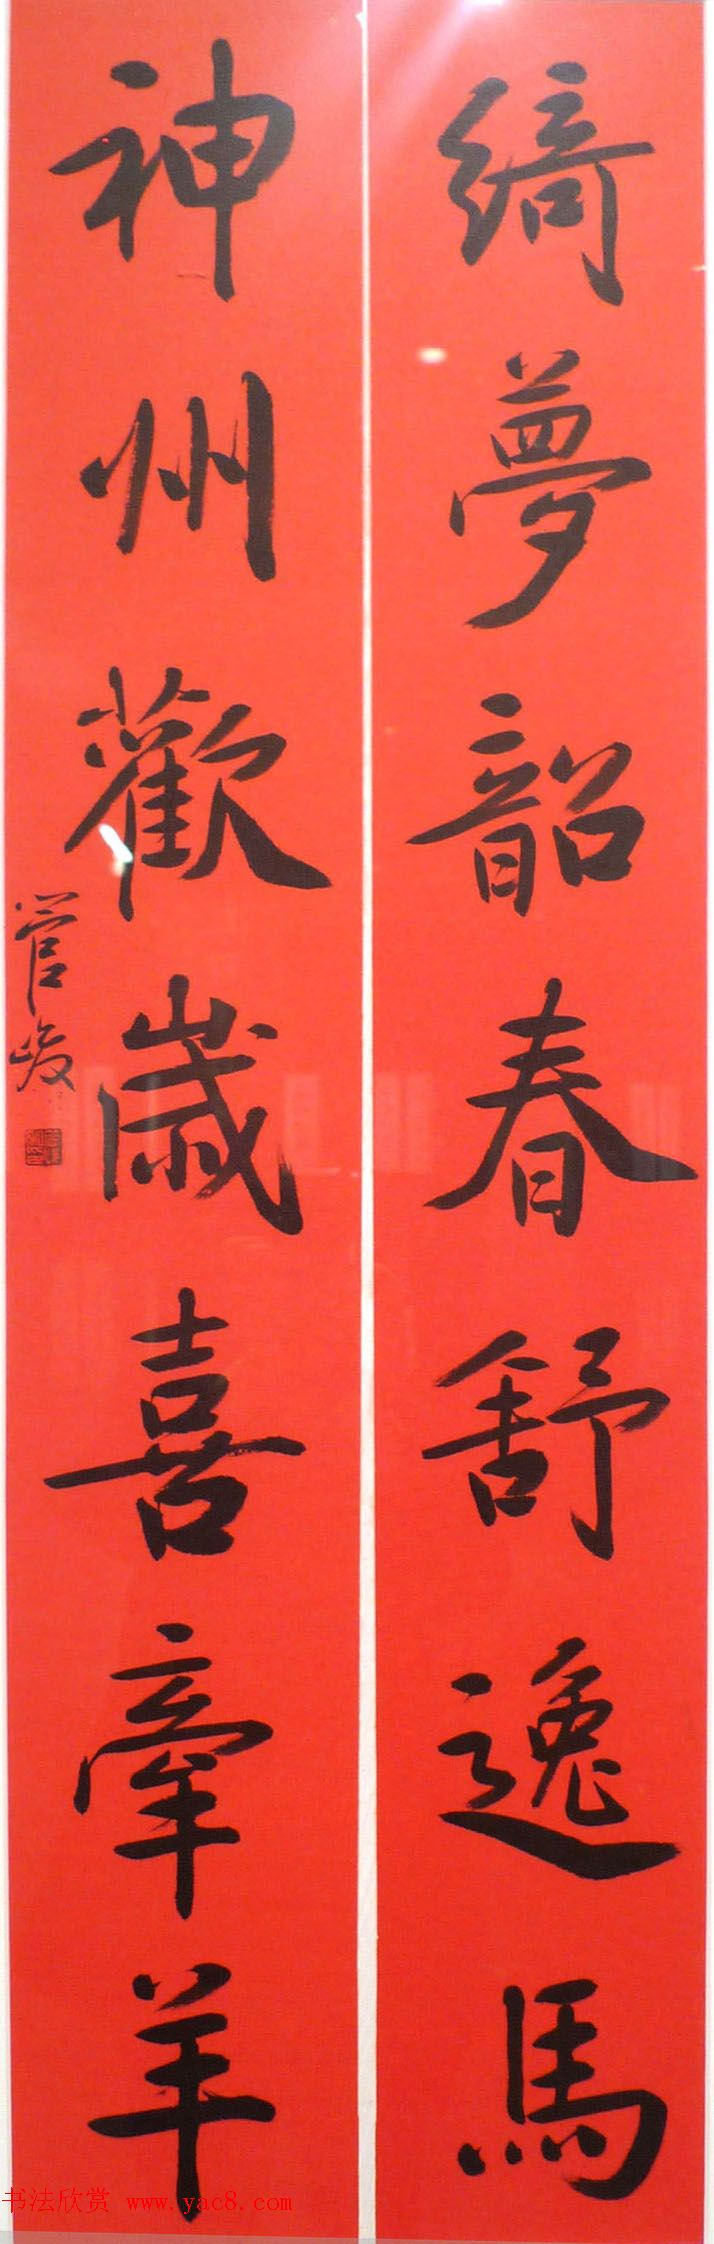 綺夢韶春舒逸馬
神州歡歲喜牽羊
管峻
书法欣赏 www.yac8.com